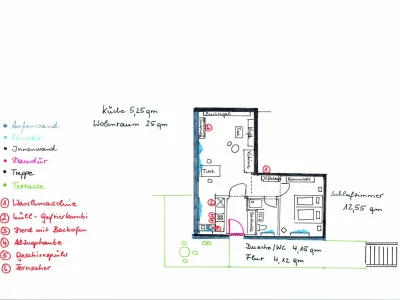 Küche 5,25 qm
Wohnraum 25 qm
Außenwand
Fenster
Innenwand
Haustür
Treppe
Terrasse
① Waschmaschine
② Kühl-Gefrierkombi
③ Herd mit Backofen
④ Abzugshaube
⑤ Geschirrspüler
⑥ Fernseher
Tisch
Schlafzimmer
12,55 qm
Dusche/WC 4,15 qm
Flur 4,12 qm